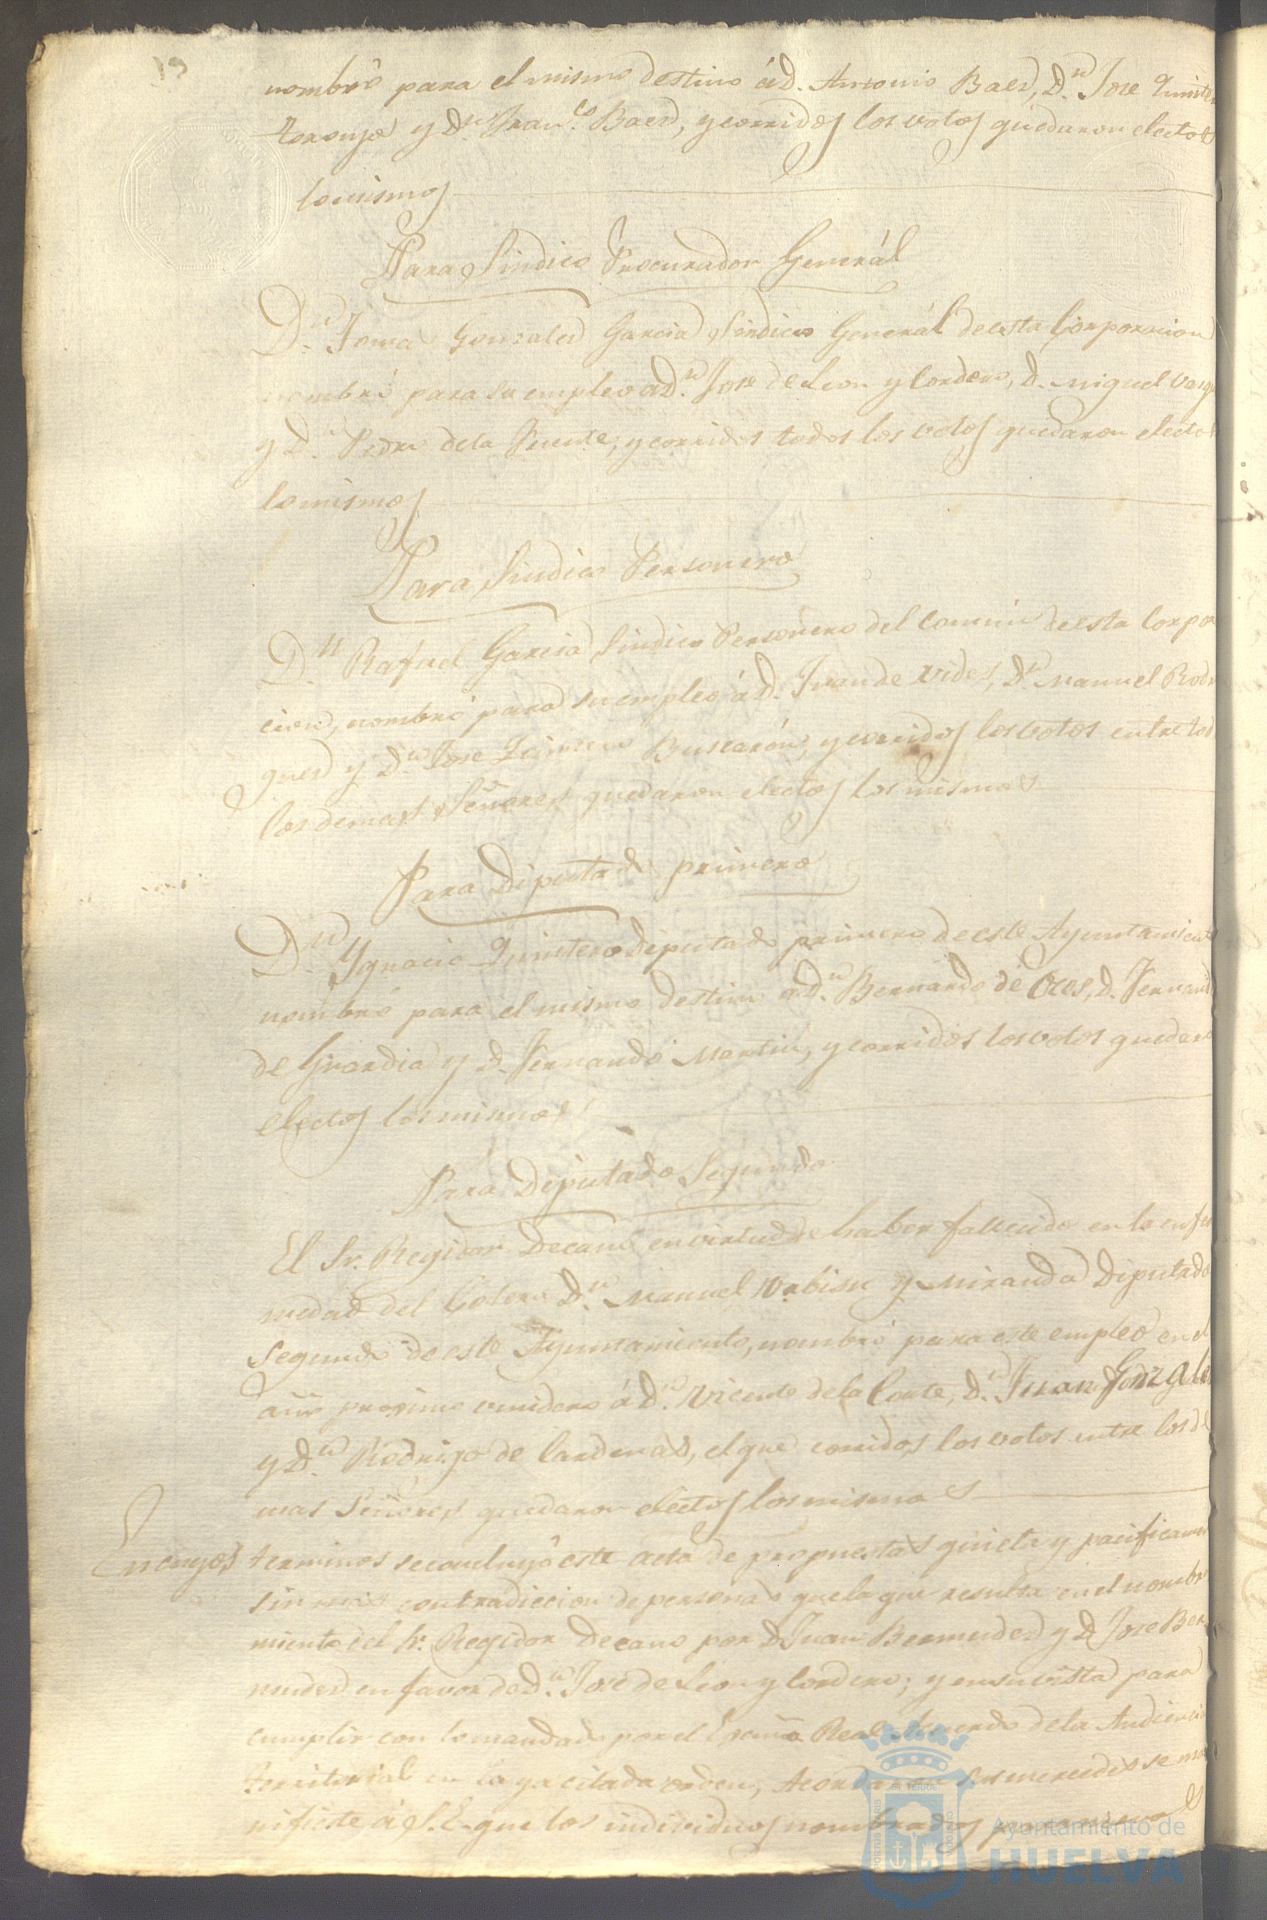 nombró para el mismo destino á D. Antonio Baes, D.n Jose Quinte
toronjo y D.n Fran.co Baes, y corridos los votos quedaron electos
los mismos
Para Sindico Procurador General
D.n Gonzales Garcia Sindico General de esta Corporacion
nombró para su empleo a D.n Jose de Leon y Cordero, D. Miguel
y D.n Pedro de la Puente, y corridos todos los votos quedaron electos
los mismos
Para Sindico Personero
D.n Rafael Garcia Sindico Personero del comun de esta Corpor
cion, nombró para su empleo á D. Juan de Vides, D.n Manuel Rodri
gues y D.n Jose Buscarón, y corridos los votos entre tod
los demas Señores quedaron electos los mismos
Para Diputado primero
D.n Ygnacio Quintero Diputado primero de este Ayuntamiento
nombró para el mismo destino á D.n Bernardo de Cres, D. Fernando
de Guardia y D. Fernando Martin, y corridos los votos quedaro
electos los mismos
Para Diputado Segundo
El Sr. Regidor Decano en virtud de haber fallecido en la enfer
medad del Colera D.n Manuel y Miranda Diputado
segundo de este Ayuntamiento, nombró para este empleo en el
año proximo venidero á D.n Vicente de la Corte, D.n Juan Gonzales
y D.n Rodrigo de Cardenas, el que corridos los votos entre los de
mas Señores quedaron electos los mismos
En cuyos terminos se concluyó este acto de propuestas quieta y pacificamen
sin mas contradiccion de persona que la que resulta en el nombra
miento del Sr. Regidor Decano por D. Juan Bermudes y D. Jose Ber
mudes en favor de D.n Jose de Leon y Cordero; y en su vista para
cumplir con lo mandado por el Real Acuerdo de la Audiencia
territorial en la ya citada orden, Acordaron sus mercedes se ma
nifieste á S.E. que los individuos nombrados
Ayuntamiento de
HUELVA